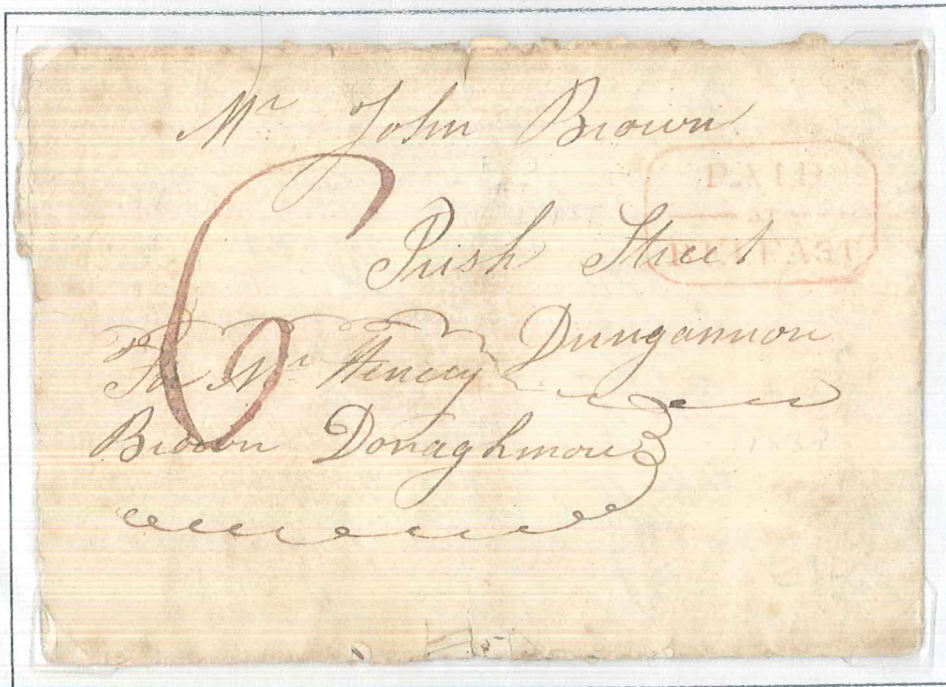 Mr John Brown
PAID
AT
BELFAST
6
Irish Street
Dungannon
For Mr Henery
Brown Donaghmore